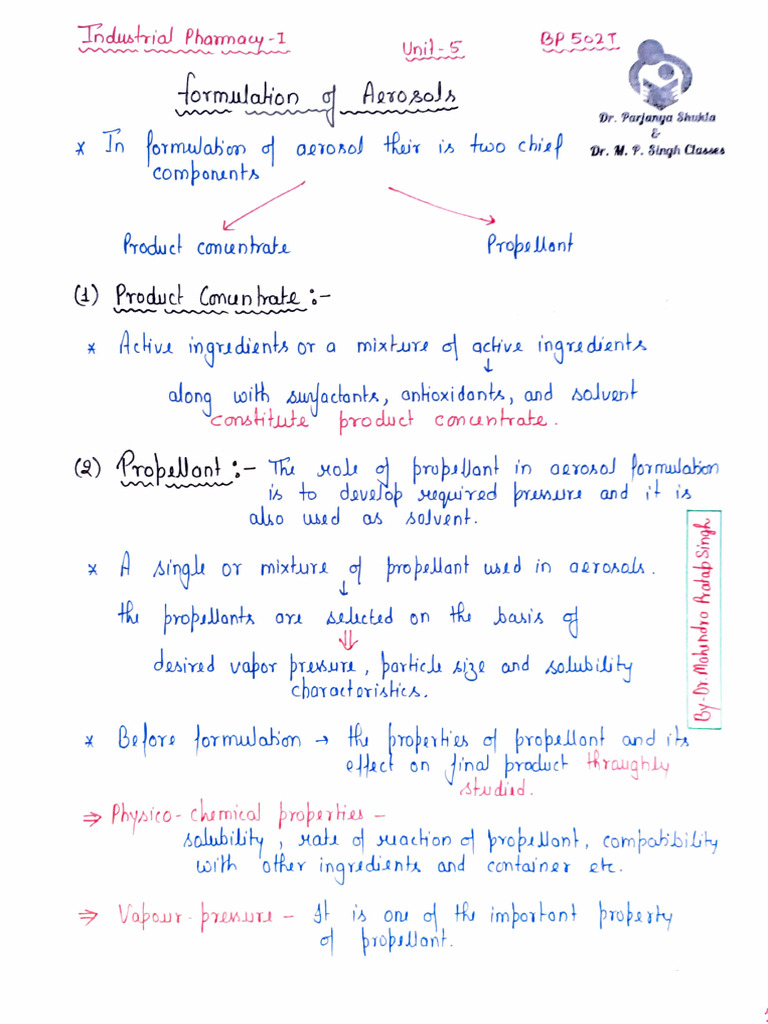 Industrial Pharmacy-I
Unit-5
BP 502T
Dr. Parjanya Shukla
&
Dr. M. P. Singh Classes
formulation of Aerosols
* In formulation of aerosol their is two chief
components
Product concentrate
Propellant
(1) Product Concentrate :-
* Active ingredients or a mixture of active ingredients
along with surfactants, antioxidants, and solvent
constitute product concentrate.
(2) Propellant :- The role of propellant in aerosol formulation
is to develop required pressure and it is
also used as solvent.
* A single or mixture of propellant used in aerosols.
the propellants are selected on the basis of
desired vapor pressure, particle size and solubility
characteristics.
* Before formulation → the properties of propellant and its
effect on final product thraughly
studied.
⇒ Physico-chemical properties -
solubility, rate of reaction of propellant, compatibility
with other ingredients and container etc.
⇒ Vapour-pressure - It is one of the important property
of propellant.
By-Dr. Mahendra Pratap Singh